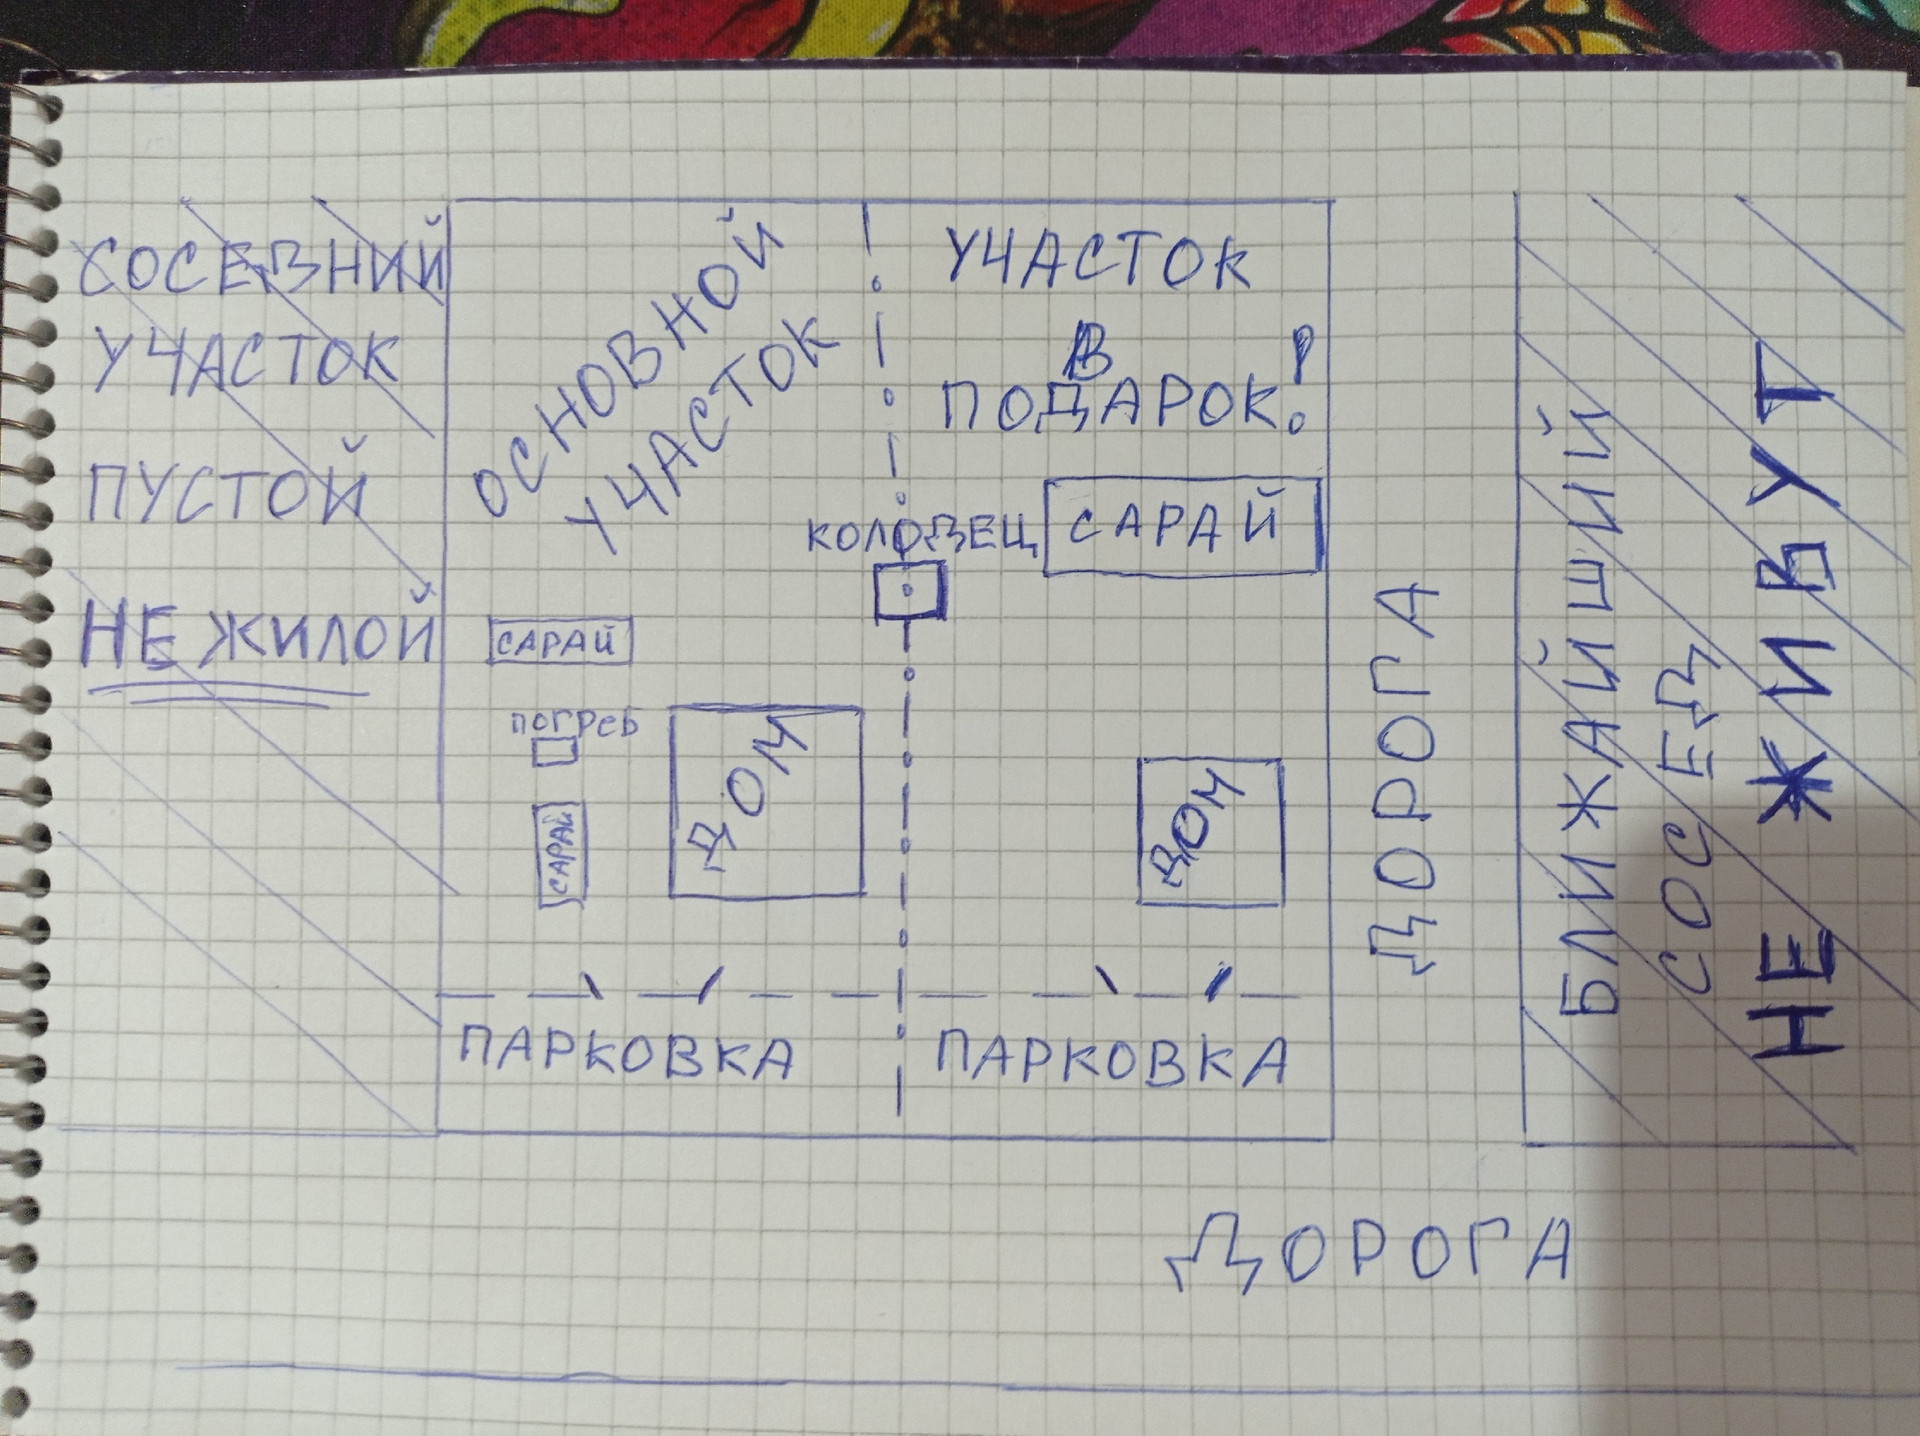 СОСЕДНИЙ
УЧАСТОК
ПУСТОЙ
НЕ ЖИЛОЙ
ОСНОВНОЙ
УЧАСТОК
УЧАСТОК
В
ПОДАРОК!
КОЛОДЕЦ
САРАЙ
САРАЙ
ПОГРЕБ
САРАЙ
ДОМ
ДОМ
ПАРКОВКА
ПАРКОВКА
ДОРОГА
БЛИЖАЙШИЙ
СОСЕД
НЕ ЖИВУТ
ДОРОГА